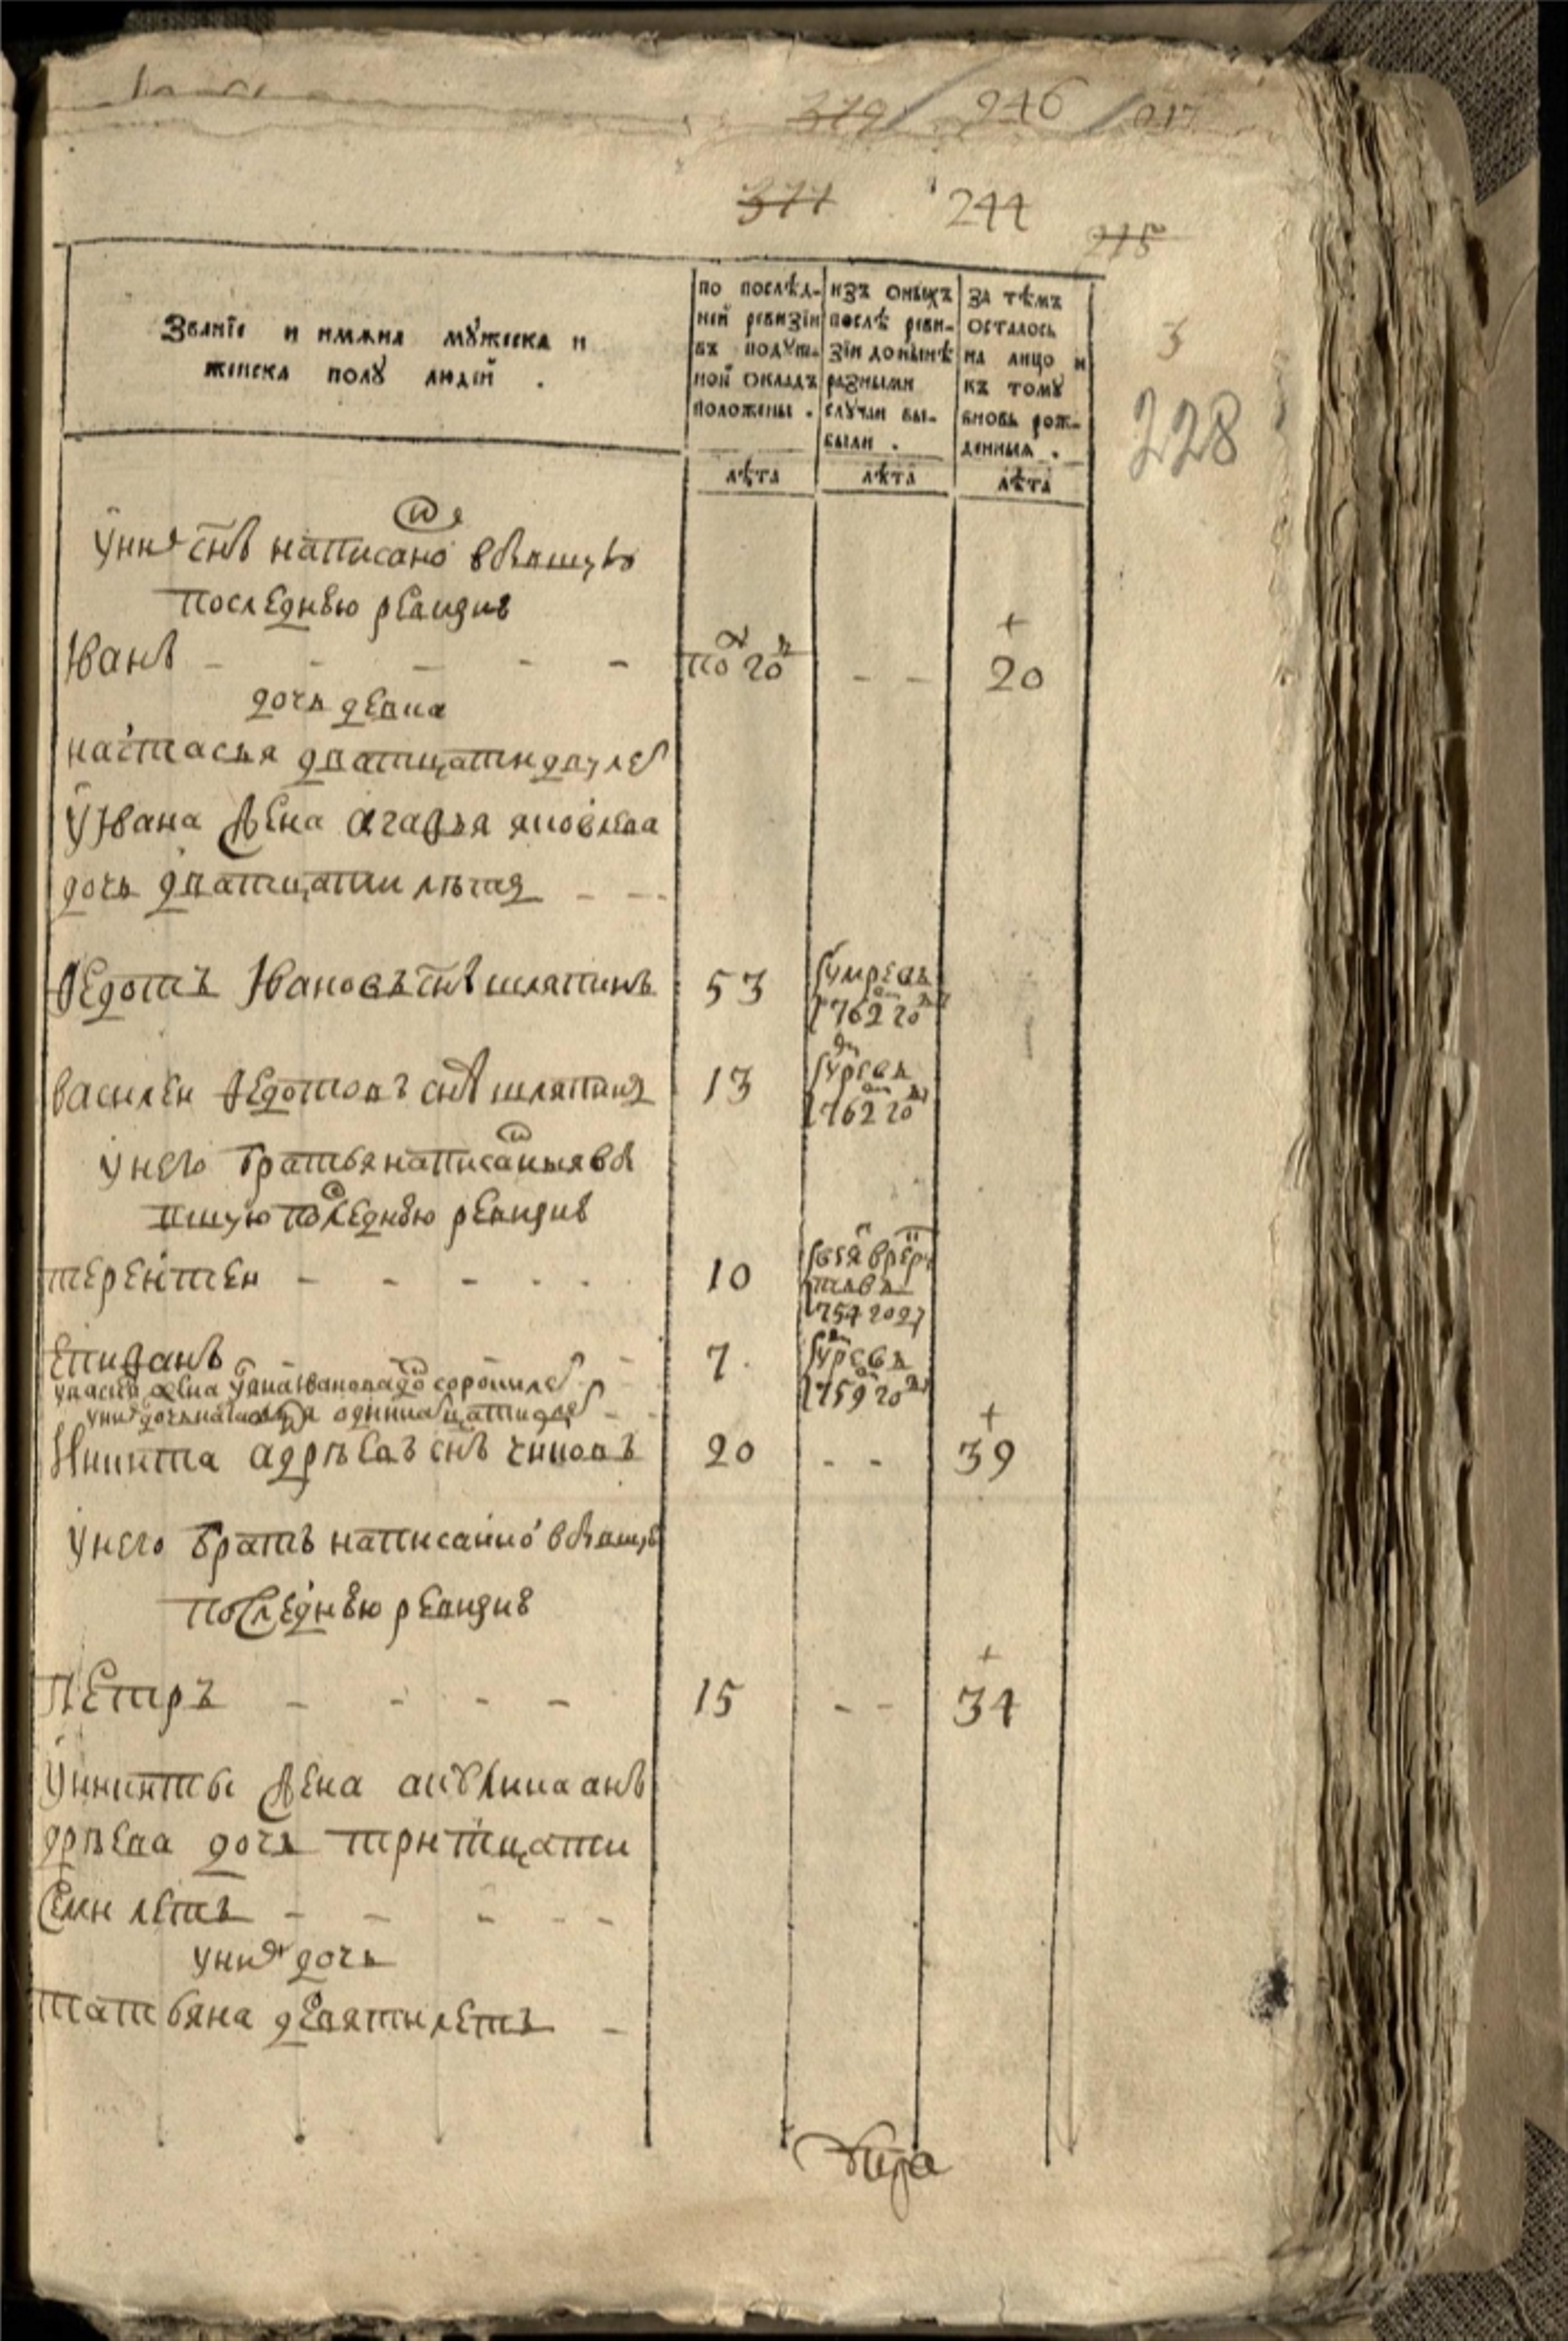 379 / 246 / 217
377 244
215
3
228
Званїе и имяна мꙋжеска и
женска полꙋ людей .
по послѣд-
ней ревизїи
въ подꙋш-
ной окладъ
положены .
лѣта
изъ оныхъ
послѣ реви-
зїи донынѣ
разными
слꙋчаи вы-
были .
лѣта
за тѣмъ
осталось
на лицо и
къ томꙋ
вновь рож-
денныя .
лѣта
у них снъ написано в бывшую
последнею ревизие
Иванъ - - - - - по году - - 20
дочь девка
настасья дватцати двух лет
у Ивана жена агафья яковлева
дочь дватцати летъ - -
Федотъ Ивановъ снъ шляпинъ 53 умре въ
1762 году
василеи Федотовъ снъ шляпинъ 13 умре въ
1762 году
у него братья написаныя в бы
вшую последнею ревизие
терентеи - - - - - 10
1754 году
Епифанъ - - 7 умре въ
1759 году
Никита адрѣевъ снъ 20 - - 39
у него братъ написанно в бывшую
последнею ревизие
Петръ - - - - 15 - - 34
у никиты жена акулина анъ
дрѣева дочь тритцати
семи летъ - - - - -
у них дочь
татьяна девяти летъ -